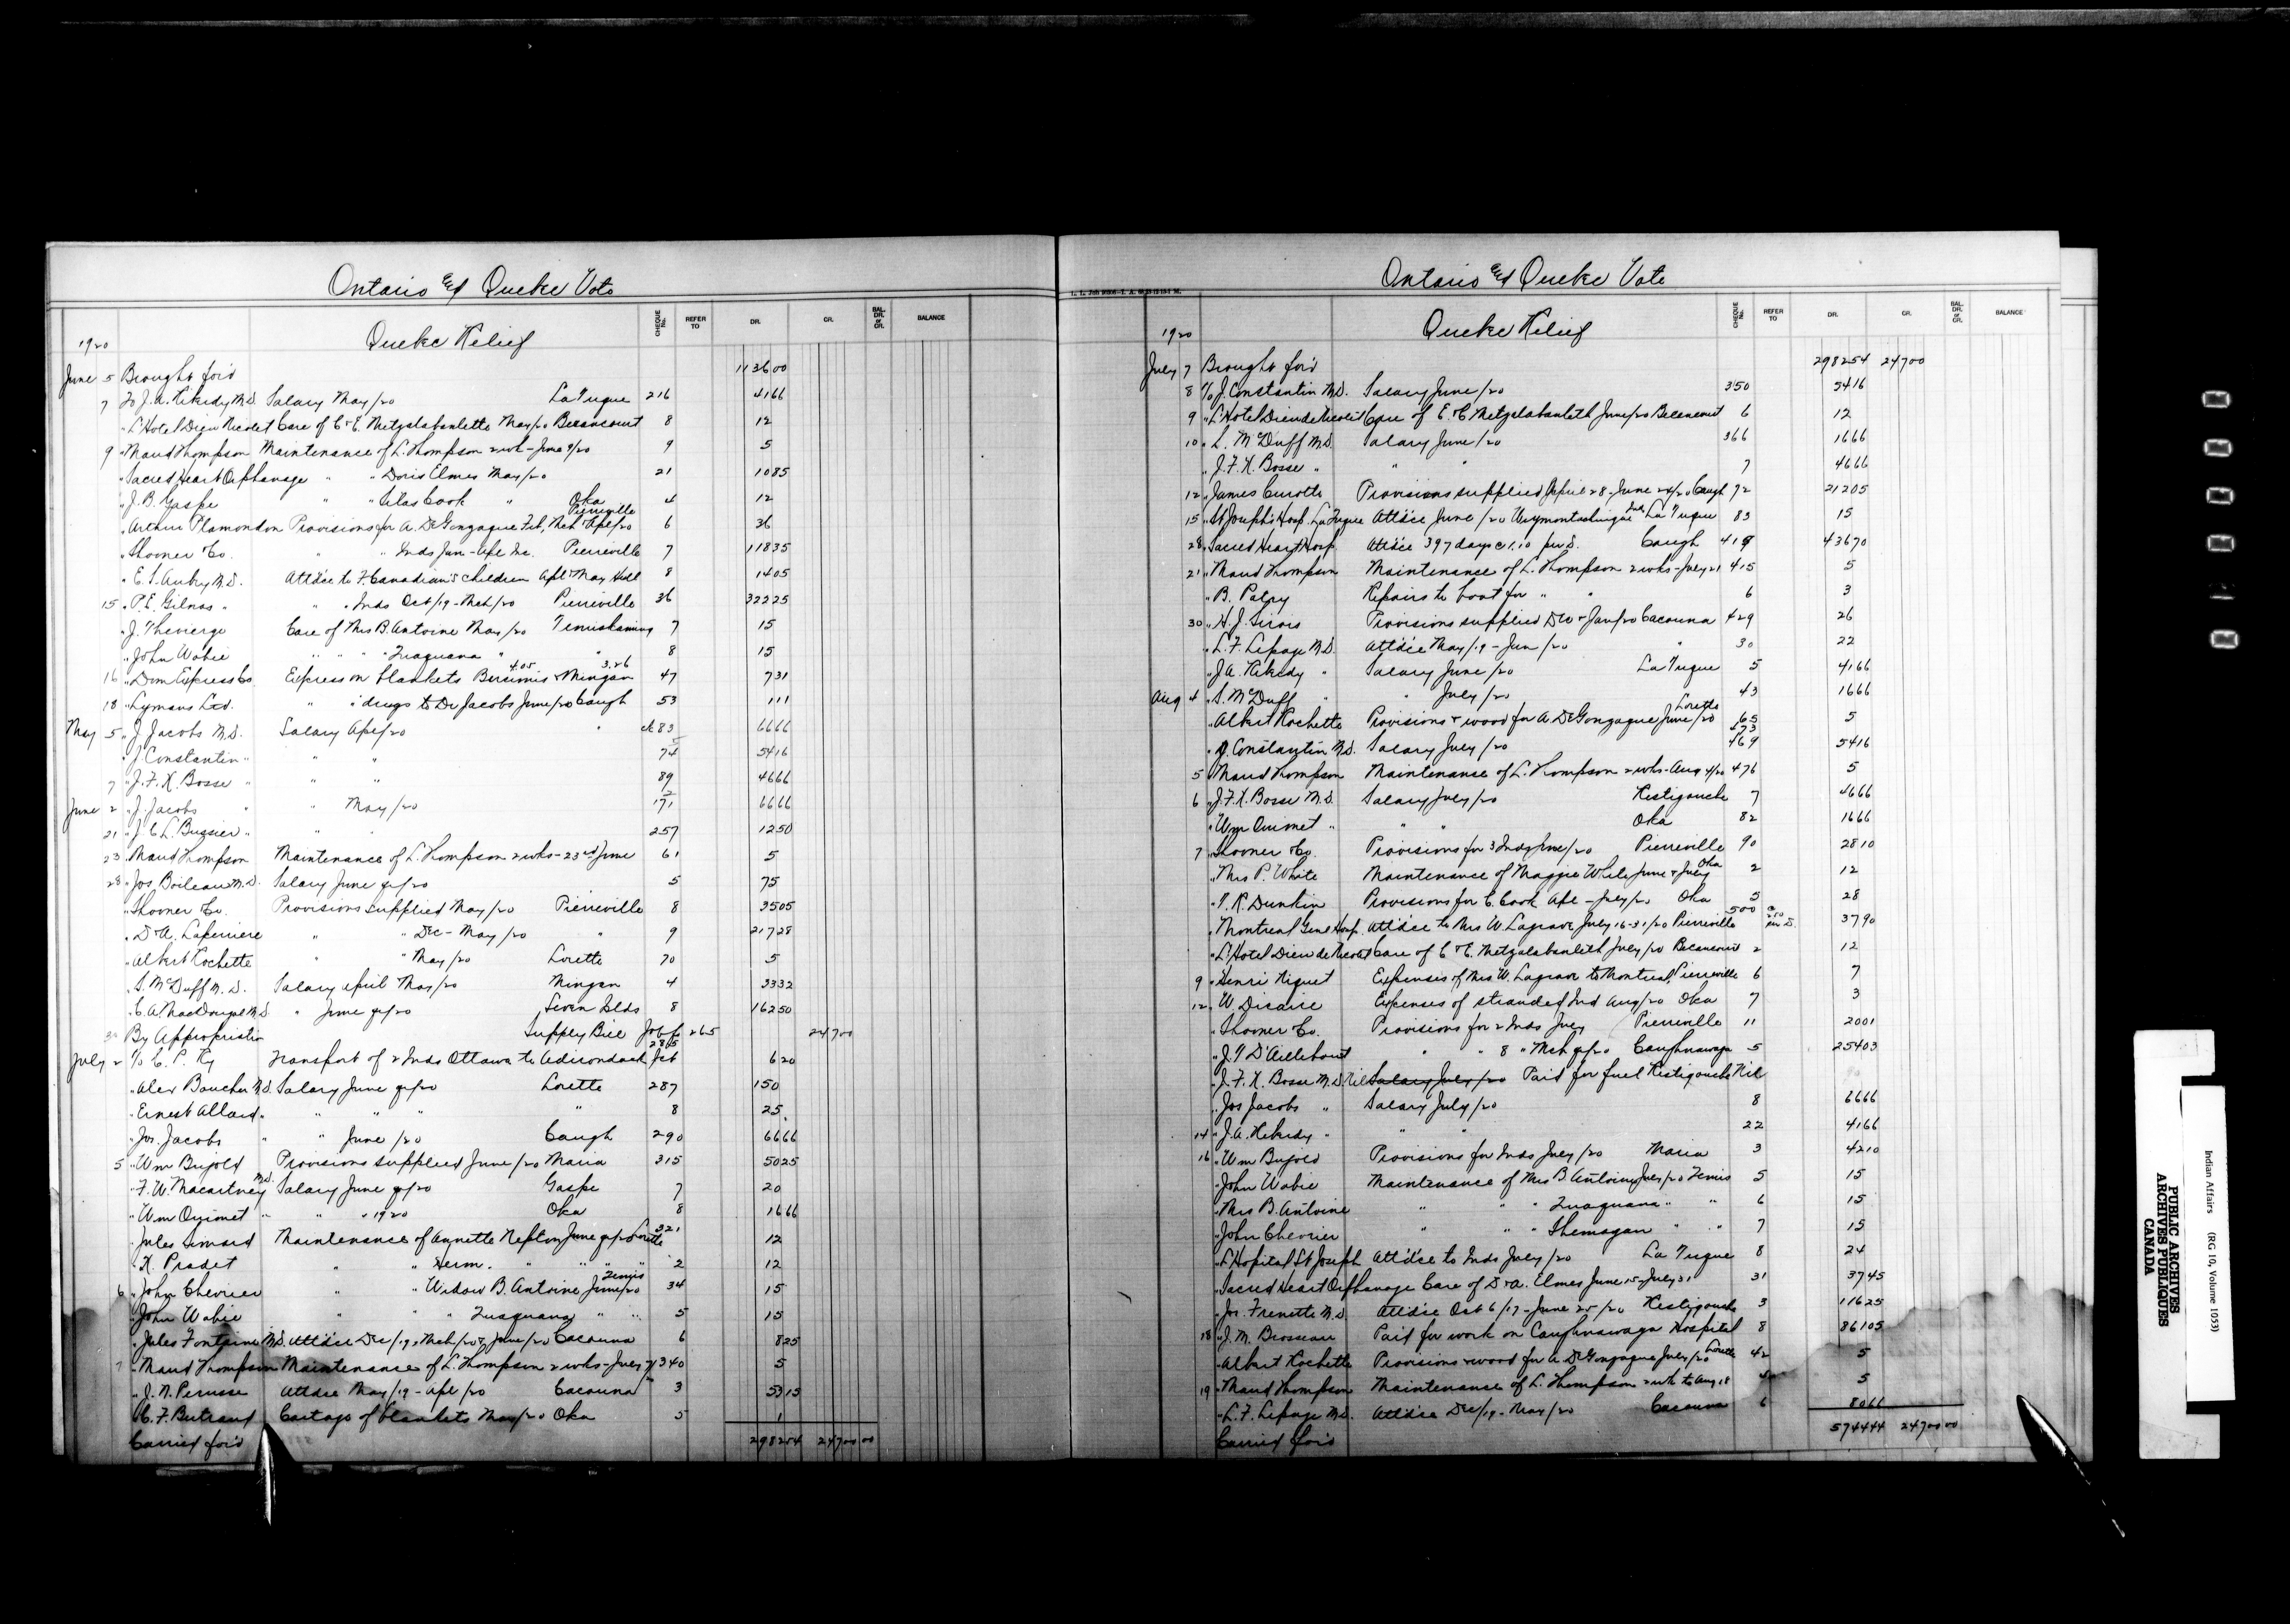 Ontario & Quebec Vote
CHEQUE No. REFER TO DR. CR. BAL. DR. or CR. BALANCE
Quebec Relief
1920
June 5 Brought for'd 113600
7 To J. A. Kikedy M.D. Salary May/20 La Tuque 216 4166
" L'Hotel Dieu Nicolet Care of C & E. Metzalabanlette May/20 Becancourt 8 12
9 " Maud Thompson Maintenance of L. Thompson 2 wk - June 9/20 9 5
" Sacred Heart Orphanage " " Doris Elmes May/20 21 1085
" J. B. Gaspe " " Silas Cook " Oka 4 12
" Arthur Plamondon Provisions for A. De Gonzague Feb, Mch & Apl/20 Pierreville 6 36
" Shooner & Co. " " Inds Jan - Apl Inc. Pierreville 7 11835
" E. S. Aubry M.D. Att'd'ce to F. Canadian's children Apl & May 8 1405
15 " P. E. Gilnas " " " Inds Oct/19 - Mch/20 Pierreville 36 32225
" J. Thevierge Care of Mrs B. Antoine May/20 Temiskaming 7 15
" John Wabie " " " " Zuaquana " " 8 15
16 " Dom Express Co Express on blankets Bersimis 4.05 & Mingan 3.26 47 731
18 " Lymans Ltd. " " drugs to Dr Jacobs June/20 Caugh 53 111
May 5 " J. Jacobs M.D. Salary Apl/20 " 83 6666
" J. Constantin " " " 74 5416
7 " J. F. K. Bosse " " " 89 4666
June 2 " J. Jacobs " " May/20 171 6666
21 " J. C. L. Bussier " " " 257 1250
23 " Maud Thompson Maintenance of L. Thompson 2 wks - 23rd June 61 5
28 " Jos Boileau M.D. Salary June qr/20 5 75
" Shooner & Co. Provisions supplied May/20 Pierreville 8 3505
" D. A. Laperriere " " Dec - May/20 " 9 21728
" Albert Rochette " " May/20 Lorette 70 5
" S. McDuff M.D. Salary April & May/20 Mingan 4 3332
" C. A. MacDougal M.D. " June qr/20 Seven Ilds 8 16250
30 By Appropriation Supply Bill 265 24700
July 2 To C. P. Ry Transport of 2 Inds Ottawa to Adirondack Jct 285 620
" Alex Boucher M.D. Salary June qr/20 Lorette 287 150
" Ernest Allard " " " " " 8 25
" Jos. Jacobs " " June/20 Caugh 290 6666
5 " Wm Bujold Provisions supplied June/20 Maria 315 5025
" F. W. Macartney M.D. Salary June qr/20 Gaspe 7 20
" Wm Ouimet " " " 1920 Oka 8 1666
" Jules Maintenance of Annette Nepton June qr/20 Lorette 321 12
" K. Pradet " " Herm. " " " 2 12
6 " John Chevrier " " Widow B. Antoine June/20 Temis 34 15
" John Wabie " " " Zuaquana " " 5 15
" Jules Fontaine M.D. Att'd'ce Dec/19, Mch/20 & June/20 Cacouna 6 825
7 " Maud Thompson Maintenance of L. Thompson 2 wks - July 7/20 340 5
" J. N. Perusse Att'd'ce May/19 - Apl/20 Cacouna 3 5315
" C. F. Bertrand Cartage of blankets May/20 Oka 5 1
Carried for'd 298254 2470000
Ontario & Quebec Vote
CHEQUE No. REFER TO DR. CR. BAL. DR. or CR. BALANCE
Quebec Relief
1920
July 7 Brought for'd 298254 24700
8 To J. Constantin M.D. Salary June/20 350 5416
9 " L'Hotel Dieu de Nicolet Care of E. & C. Metzalabanleth June/20 Becancourt 6 12
10 " S. McDuff M.D. Salary June/20 366 1666
" J. F. K. Bosse " " " 7 4666
12 " James Curotte Provisions supplied April 28 - June 24/20 Caugh 92 21205
15 " St Joseph's Hosp. La Tuque Att'd'ce June/20 Weymontachingue Ind. La Tuque 83 15
28 " Sacred Heart Hosp. Att'd'ce 397 days @ 1.10 per D. Caugh 419 43670
21 " Maud Thompson Maintenance of L. Thompson 2 wks - July 21 415 5
" B. Palpy Repairs to boat for " " 6 3
30 " H. J. Sirois Provisions supplied Dec & Jan/20 Cacouna 429 26
" L. F. Lepage M.D. Att'd'ce May/19 - Jan/20 " 30 22
" J. A. Kikedy " Salary June/20 La Tuque 5 4166
Aug 4 " S. McDuff " " July/20 43 1666
" Albert Rochette Provisions & wood for A. De Gonzague June/20 Lorette 65 5
" J. Constantin M.D. Salary July/20 473 469 5416
5 " Maud Thompson Maintenance of L. Thompson 2 wks - Aug 4/20 476 5
6 " J. F. K. Bosse M.D. Salary July/20 Restigouche 7 4666
" Wm Ouimet " " " Oka 82 1666
7 " Shooner & Co. Provisions for 3 Inds June/20 Pierreville 90 2810
" Mrs P. White Maintenance of Maggie White June & July Oka 2 12
" V. R. Dunkin Provisions for C. Cook Apl - July/20 Oka 5 28
" Montreal Genl Hosp. Att'd'ce to Mrs W. Lagrave July 16-31/20 Pierreville 500 @ 2.50 per D. 3790
" L'Hotel Dieu de Nicolet Care of C & E. Metzalabanleth July/20 Becancourt 2 12
9 " Henri Niquet Expenses of Mrs W. Lagrave to Montreal, Pierreville 6 7
12 " W. Dicaire Expenses of stranded Ind Aug/20 Oka 7 3
" Shooner & Co. Provisions for 2 Inds July Pierreville 11 2001
" J. T. D'Aillebout " " 8 " Mch qr/20 Caughnawaga 5 25403
" J. F. K. Bosse M.D. Nil Salary July/20 Paid for fuel Restigouche Nil
" Jos Jacobs " Salary July/20 8 6666
14 " J. A. Kikedy " " " 22 4166
16 " Wm Bujold Provisions for Inds July/20 Maria 3 4210
" John Wabie Maintenance of Mrs B Antoine July/20 Temis 5 15
" Mrs B. Antoine " " " Zuaquana " " 6 15
" John Chevrier " " " Shemagan " " 7 15
" L'Hopital St Joseph Att'd'ce to Inds July/20 La Tuque 8 24
" Sacred Heart Orphanage Care of D & A. Elmes June 15 - July 31 31 3745
" Jos. Frenette M.D. Att'd'ce Oct 6/17 - June 25/20 Restigouche 3 11625
18 " J. M. Brosseau Paid for work on Caughnawaga Hospital 8 86105
" Albert Rochette Provisions & wood for A. De Gonzague July/20 Lorette 42 5
19 " Maud Thompson Maintenance of L. Thompson 2 wk to Aug 18 5
" L. F. Lepage M.D. Att'd'ce Dec/19 - May/20 Cacouna 6 8066
Carried for'd 574444 2470000
Indian Affairs (RG 10, Volume 1053)
PUBLIC ARCHIVES
ARCHIVES PUBLIQUES
CANADA